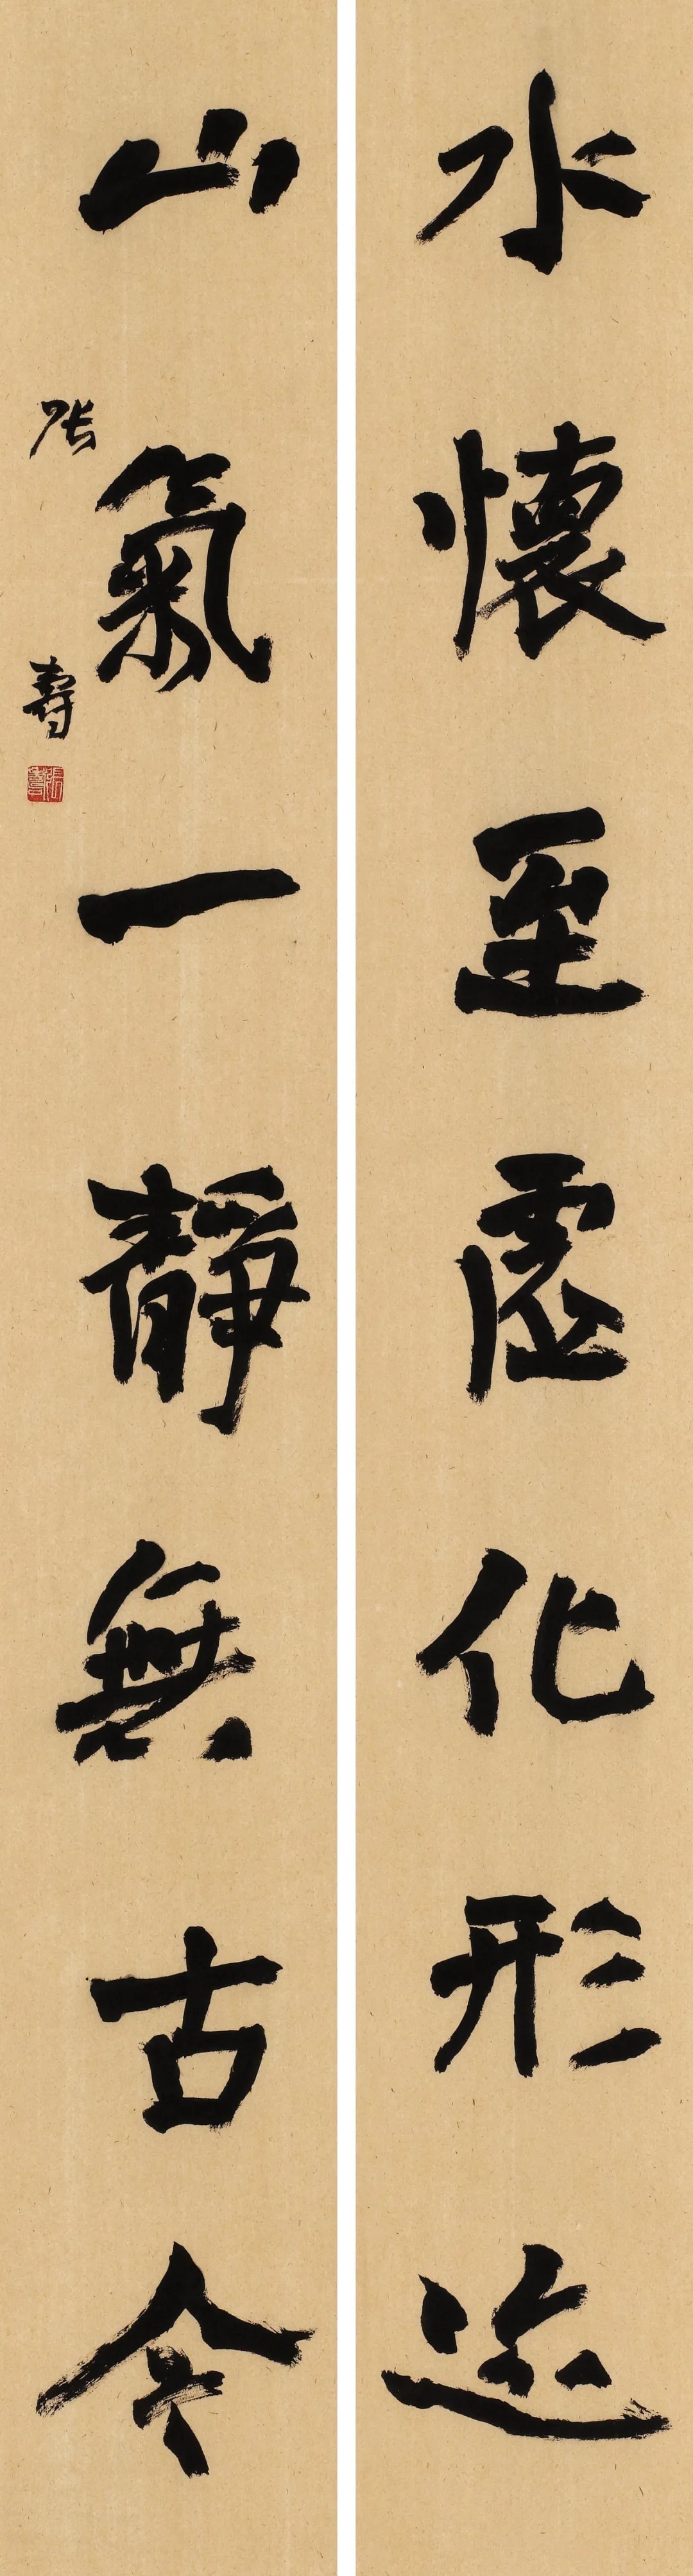 水懷至虛化形迹
山氣一靜無古今
張壽
張壽